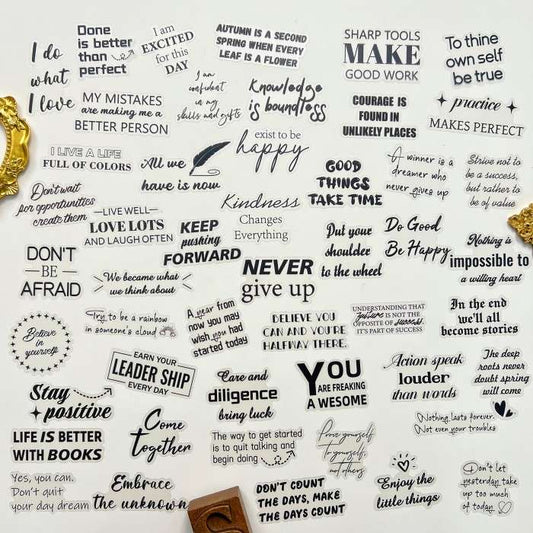 I do
what
I love
Done
is better
than
perfect
I am
EXCITED
for this
DAY
AUTUMN IS A SECOND
SPRING WHEN EVERY
LEAF IS A FLOWER
SHARP TOOLS
MAKE
GOOD WORK
To thine
own self
be true
MY MISTAKES
are making me a
BETTER PERSON
I am
confident
in my
skills and gifts
Knowledge
is boundless
COURAGE IS
FOUND IN
UNLIKELY PLACES
practice
MAKES PERFECT
I LIVE A LIFE
FULL OF COLORS
All we
have is now
exist to be
happy
GOOD
THINGS
TAKE TIME
A winner is a
dreamer who
never gives up
Strive not to
be a success,
but rather to
be of value
Don't wait
for opportunities
create them
LIVE WELL
LOVE LOTS
AND LAUGH OFTEN
KEEP
pushing
FORWARD
Kindness
Changes
Everything
Put your
shoulder
to the wheel
Do Good
Be Happy
Nothing is
impossible to
a willing heart
DON'T
BE
AFRAID
We became what
we think about
NEVER
give up
Believe
in
yourself
Try to be a rainbow
in someone's cloud
A year from
now you may
wish you had
started today
BELIEVE YOU
CAN AND YOU'RE
HALFWAY THERE.
UNDERSTANDING THAT
failure IS NOT THE
OPPOSITE OF success,
IT'S PART OF SUCCESS
In the end
we'll all
become stories
EARN YOUR
LEADER SHIP
EVERY DAY
Care and
diligence
bring luck
YOU
ARE FREAKING
A WESOME
Action speak
louder
than words
The deep
roots never
doubt spring
will come
Stay
positive
Come
together
Nothing lasts forever.
Not even your troubles
LIFE IS BETTER
WITH BOOKS
The way to get started
is to quit talking and
begin doing
Prove yourself
to yourself,
not others
Yes, you can.
Don't quit
your day dream
Embrace
the unknown
DON'T COUNT
THE DAYS, MAKE
THE DAYS COUNT
Enjoy the
little things
Don't let
yesterday take
up too much
of today